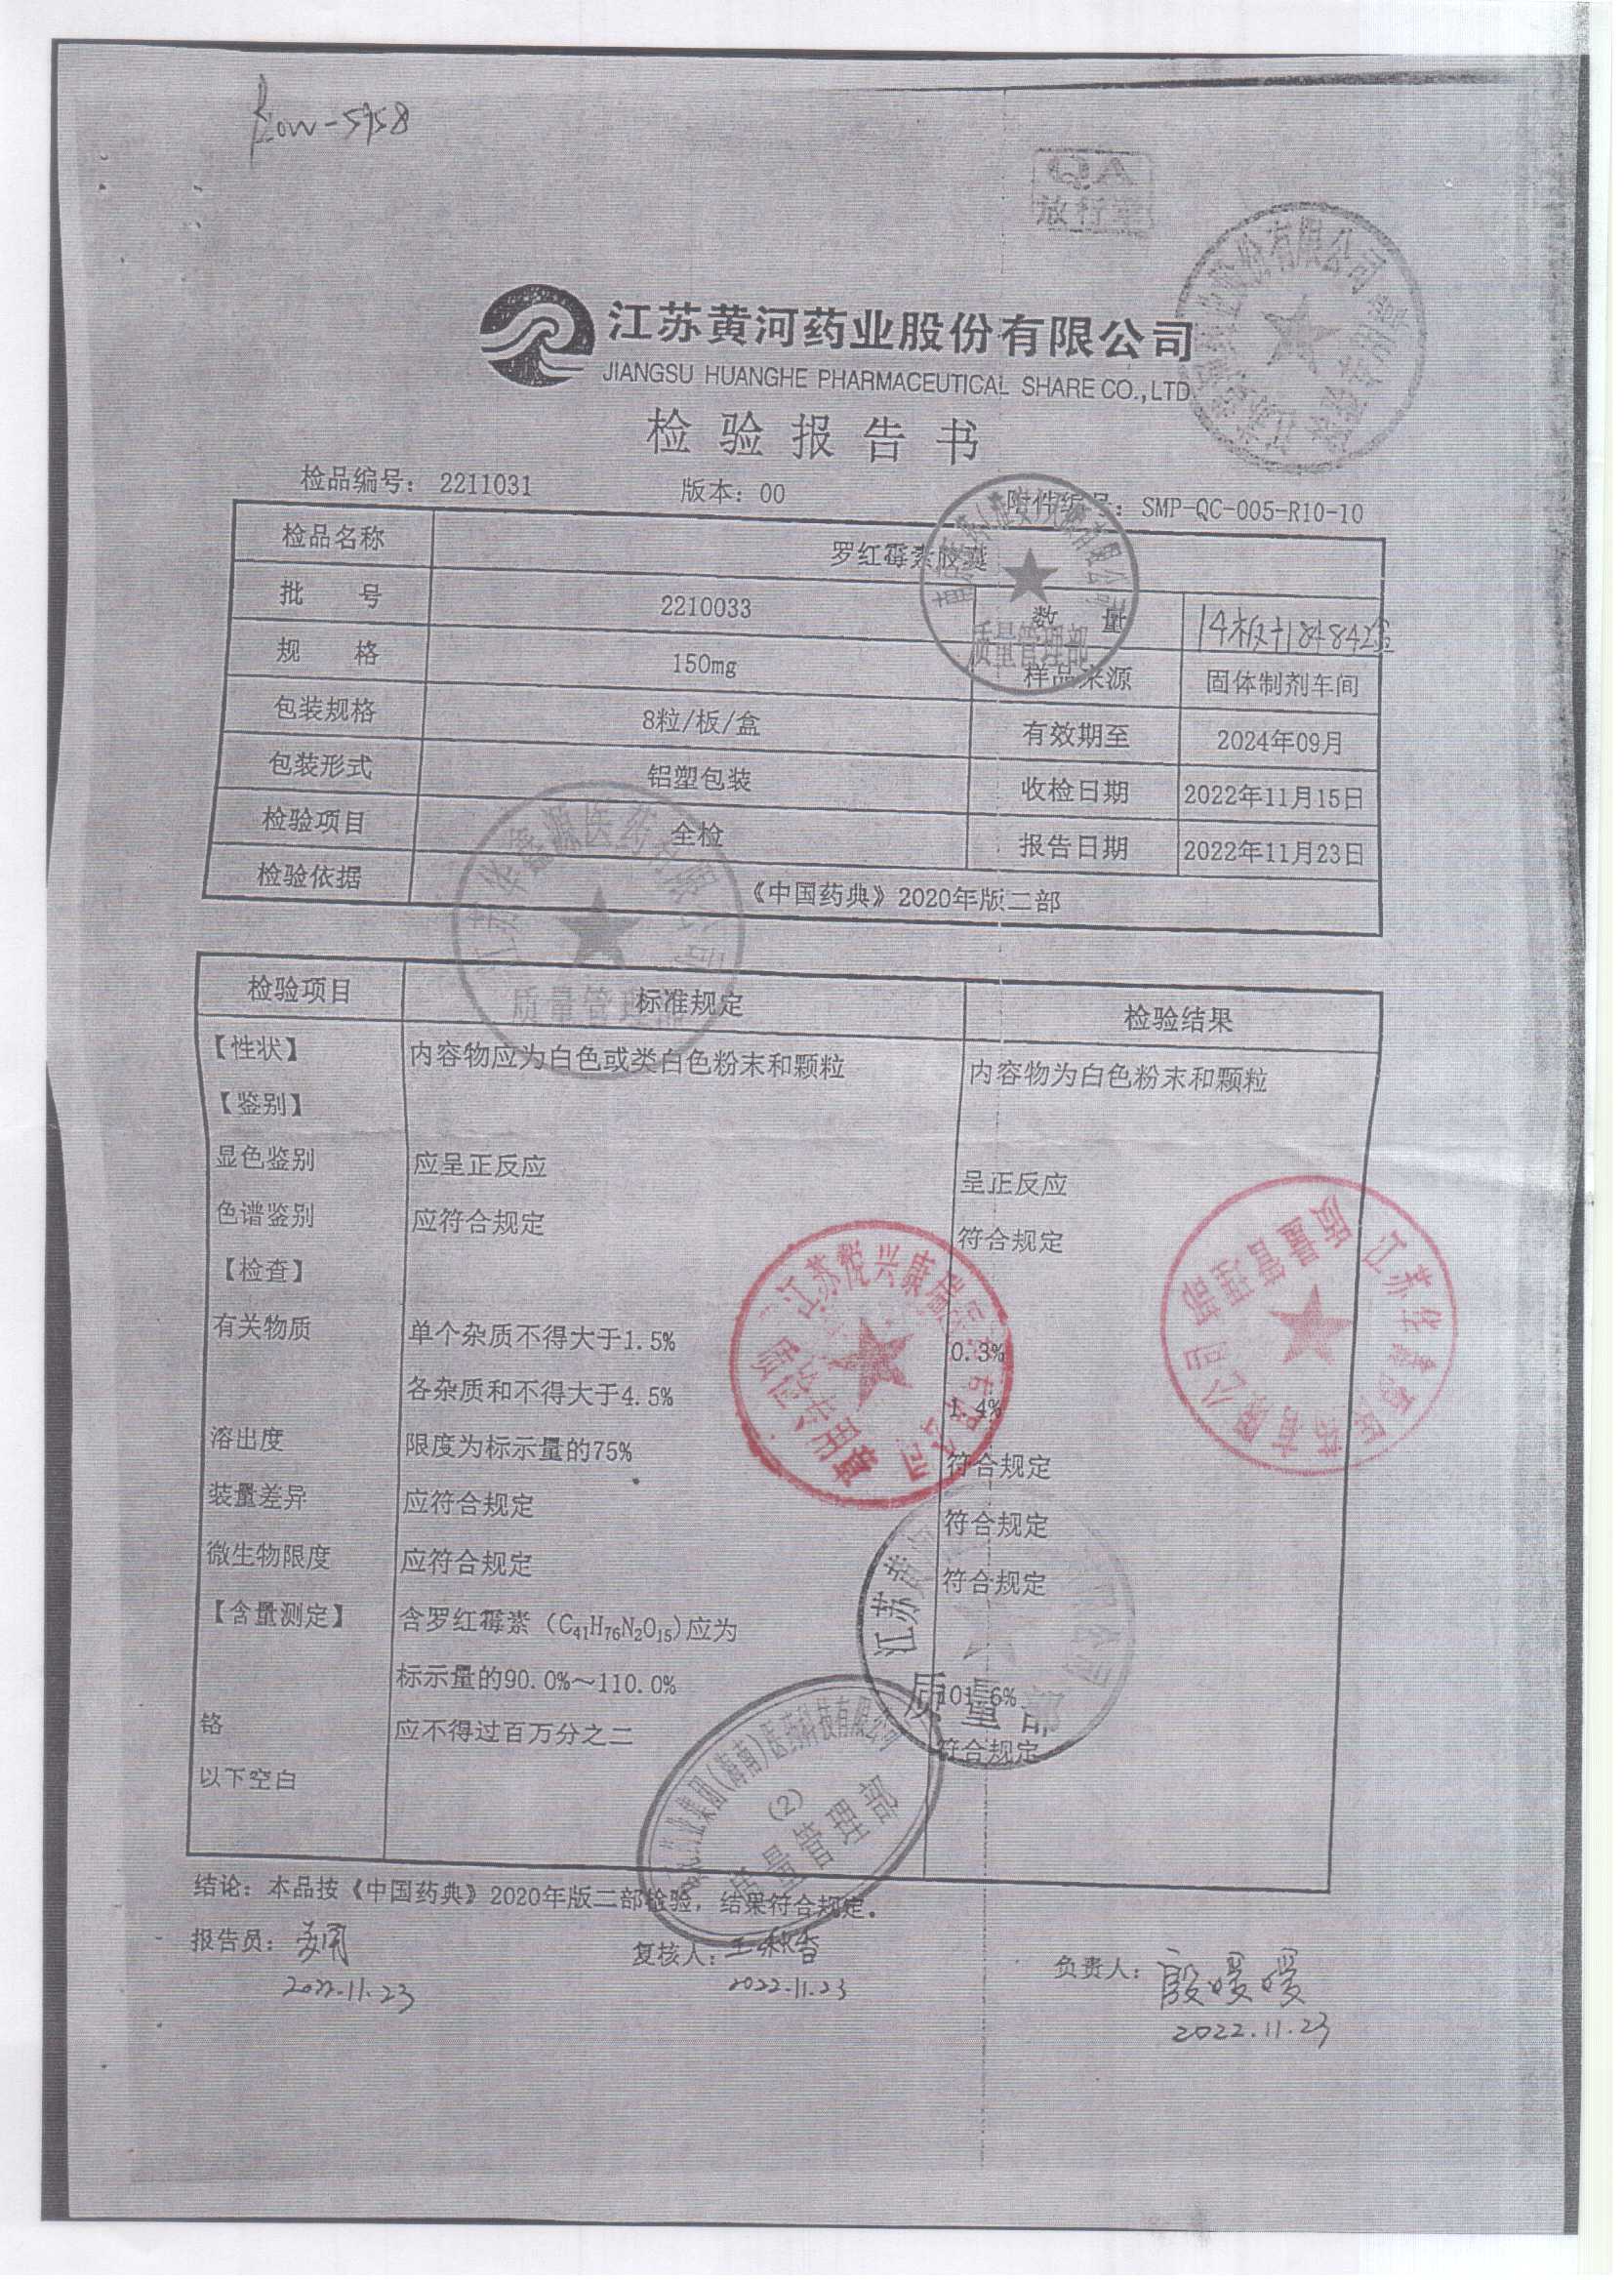 QA
江苏黄河药业股份有限公司
JIANGSU HUANGHE PHARMACEUTICAL SHARE CO.,LTD
检验报告书
检品编号： 2211031 版本：00 附件编号：SMP-QC-005-R10-10
检品名称 罗红霉素胶囊
批 号 2210033 数 量
规 格 150mg 样品来源 固体制剂车间
包装规格 8粒/板/盒 有效期至 2024年09月
包装形式 铝塑包装 收检日期 2022年11月15日
检验项目 全检 报告日期 2022年11月23日
检验依据 《中国药典》2020年版二部
质量管理部
检验项目 标准规定 检验结果
【性状】 内容物应为白色或类白色粉末和颗粒 内容物为白色粉末和颗粒
【鉴别】
显色鉴别 应呈正反应 呈正反应
色谱鉴别 应符合规定 符合规定
【检查】
有关物质 单个杂质不得大于1.5% 0.3%
各杂质和不得大于4.5% 1.4%
溶出度 限度为标示量的75% 符合规定
装量差异 应符合规定 符合规定
微生物限度 应符合规定 符合规定
【含量测定】 含罗红霉素（C41H76N2O15)应为
标示量的90.0%～110.0% 101.6%
铬 应不得过百万分之二 符合规定
以下空白
质量部
(2)
质量管理部
结论：本品按《中国药典》2020年版二部检验，结果符合规定。
报告员： 复核人：王秋香 负责人：殷媛媛
2022.11.23 2022.11.23 2022.11.23